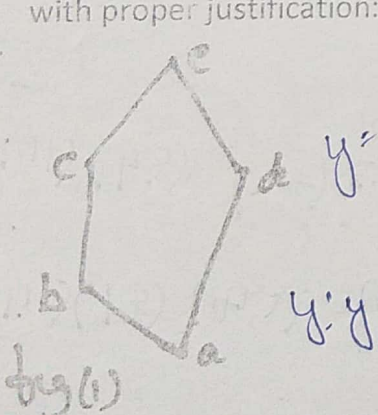 with proper justification:
e
c
d
y:
b
y: y
a
fig (1)